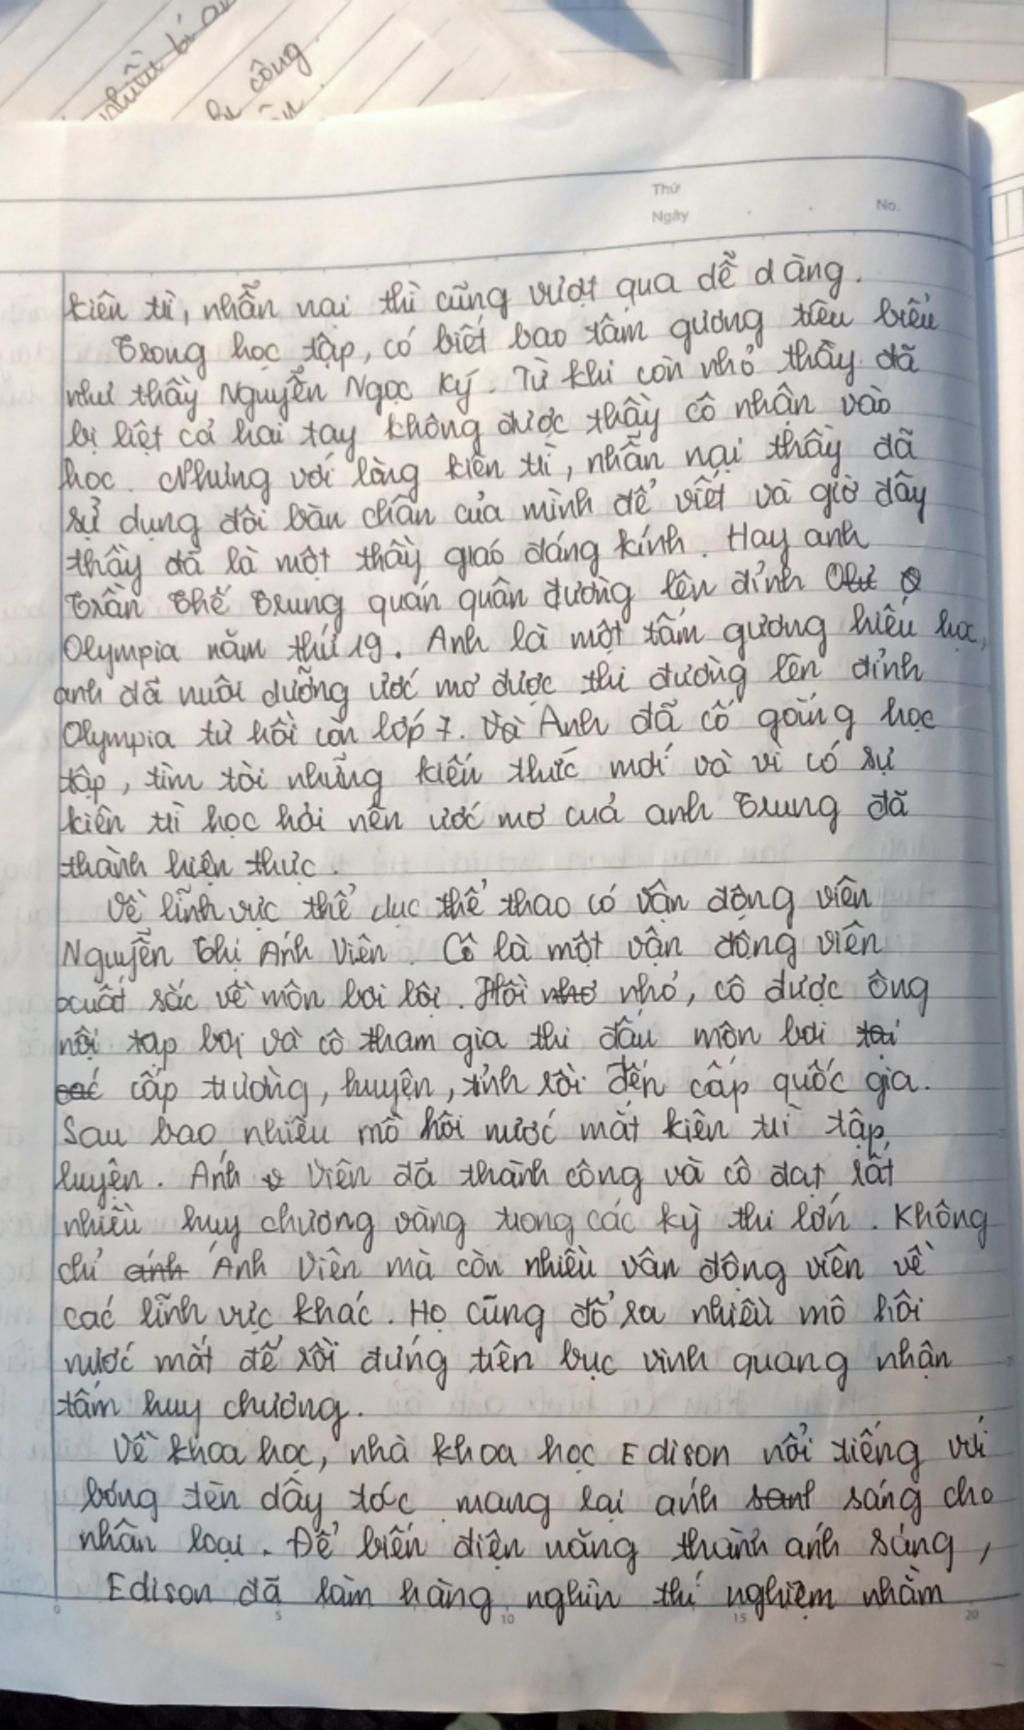 nhiều bí
công
Thứ
Ngày
No.
kiên trì, nhẫn nại thì cũng vượt qua dễ dàng.
Trong học tập, có biết bao tấm gương tiêu biểu
như thầy Nguyễn Ngọc Ký. Từ khi còn nhỏ thầy đã
bị liệt cả hai tay không được thầy cô nhận vào
học. Nhưng với lòng kiên trì, nhẫn nại thầy đã
sử dụng đôi bàn chân của mình để viết và giờ đây
thầy đã là một thầy giáo đáng kính. Hay anh
Trần Thế Trung quán quân đường lên đỉnh
Olympia năm thứ 19. Anh là một tấm gương hiếu học,
anh đã nuôi dưỡng ước mơ được thi đường lên đỉnh
Olympia từ hồi còn lớp 7. Và Anh đã cố gắng học
tập, tìm tòi những kiến thức mới và vì có sự
kiên trì học hỏi nên ước mơ của anh Trung đã
thành hiện thực.
Về lĩnh vực thể dục thể thao có vận động viên
Nguyễn Thị Ánh Viên. Cô là một vận động viên
xuất sắc về môn bơi lội. Hồi nhỏ nhỏ, cô được ông
nội tập bơi và cô tham gia thi đấu môn bơi tại
các cấp trường, huyện, tỉnh rồi đến cấp quốc gia.
Sau bao nhiêu mồ hôi nước mắt kiên trì tập
luyện. Ánh Viên đã thành công và cô đạt rất
nhiều huy chương vàng trong các kỳ thi lớn. Không
chỉ ánh Ánh Viên mà còn nhiều vận động viên về
các lĩnh vực khác. Họ cũng đổ ra nhiều mồ hôi
nước mắt để rồi đứng trên bục vinh quang nhận
tấm huy chương.
Về khoa học, nhà khoa học Edison nổi tiếng với
bóng đèn dây tóc mang lại ánh sáng cho
nhân loại. Để biến điện năng thành ánh sáng,
Edison đã làm hàng nghìn thí nghiệm nhằm
0 5 10 15 20